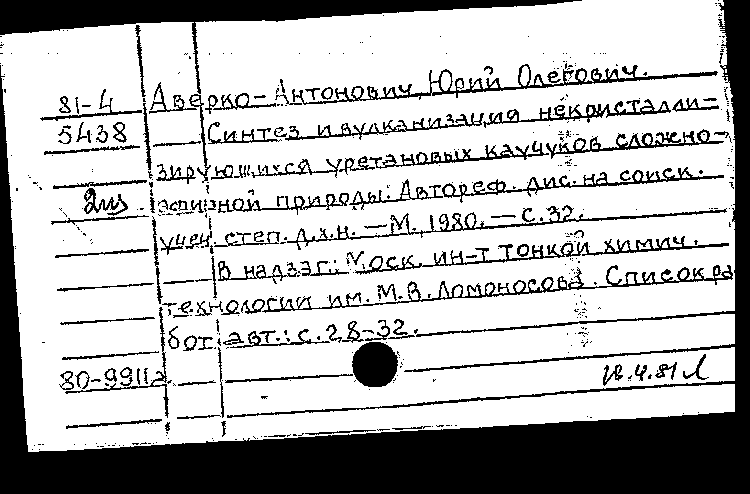 81-4 Аверко-Антонович, Юрий Олегович.
5438 Синтез и вулканизация некристалли-
зирующихся уретановых каучуков сложно-
2из эфирной природы: Автореф. дис. на соиск.
учен. степ. д.х.н. — М., 1980. — с. 32.
В надзаг.: Моск. ин-т тонкой химич.
технологии им. М.В. Ломоносова. Список ра
бот авт.: с. 28-32.
80-9911а
28.4.81 Л